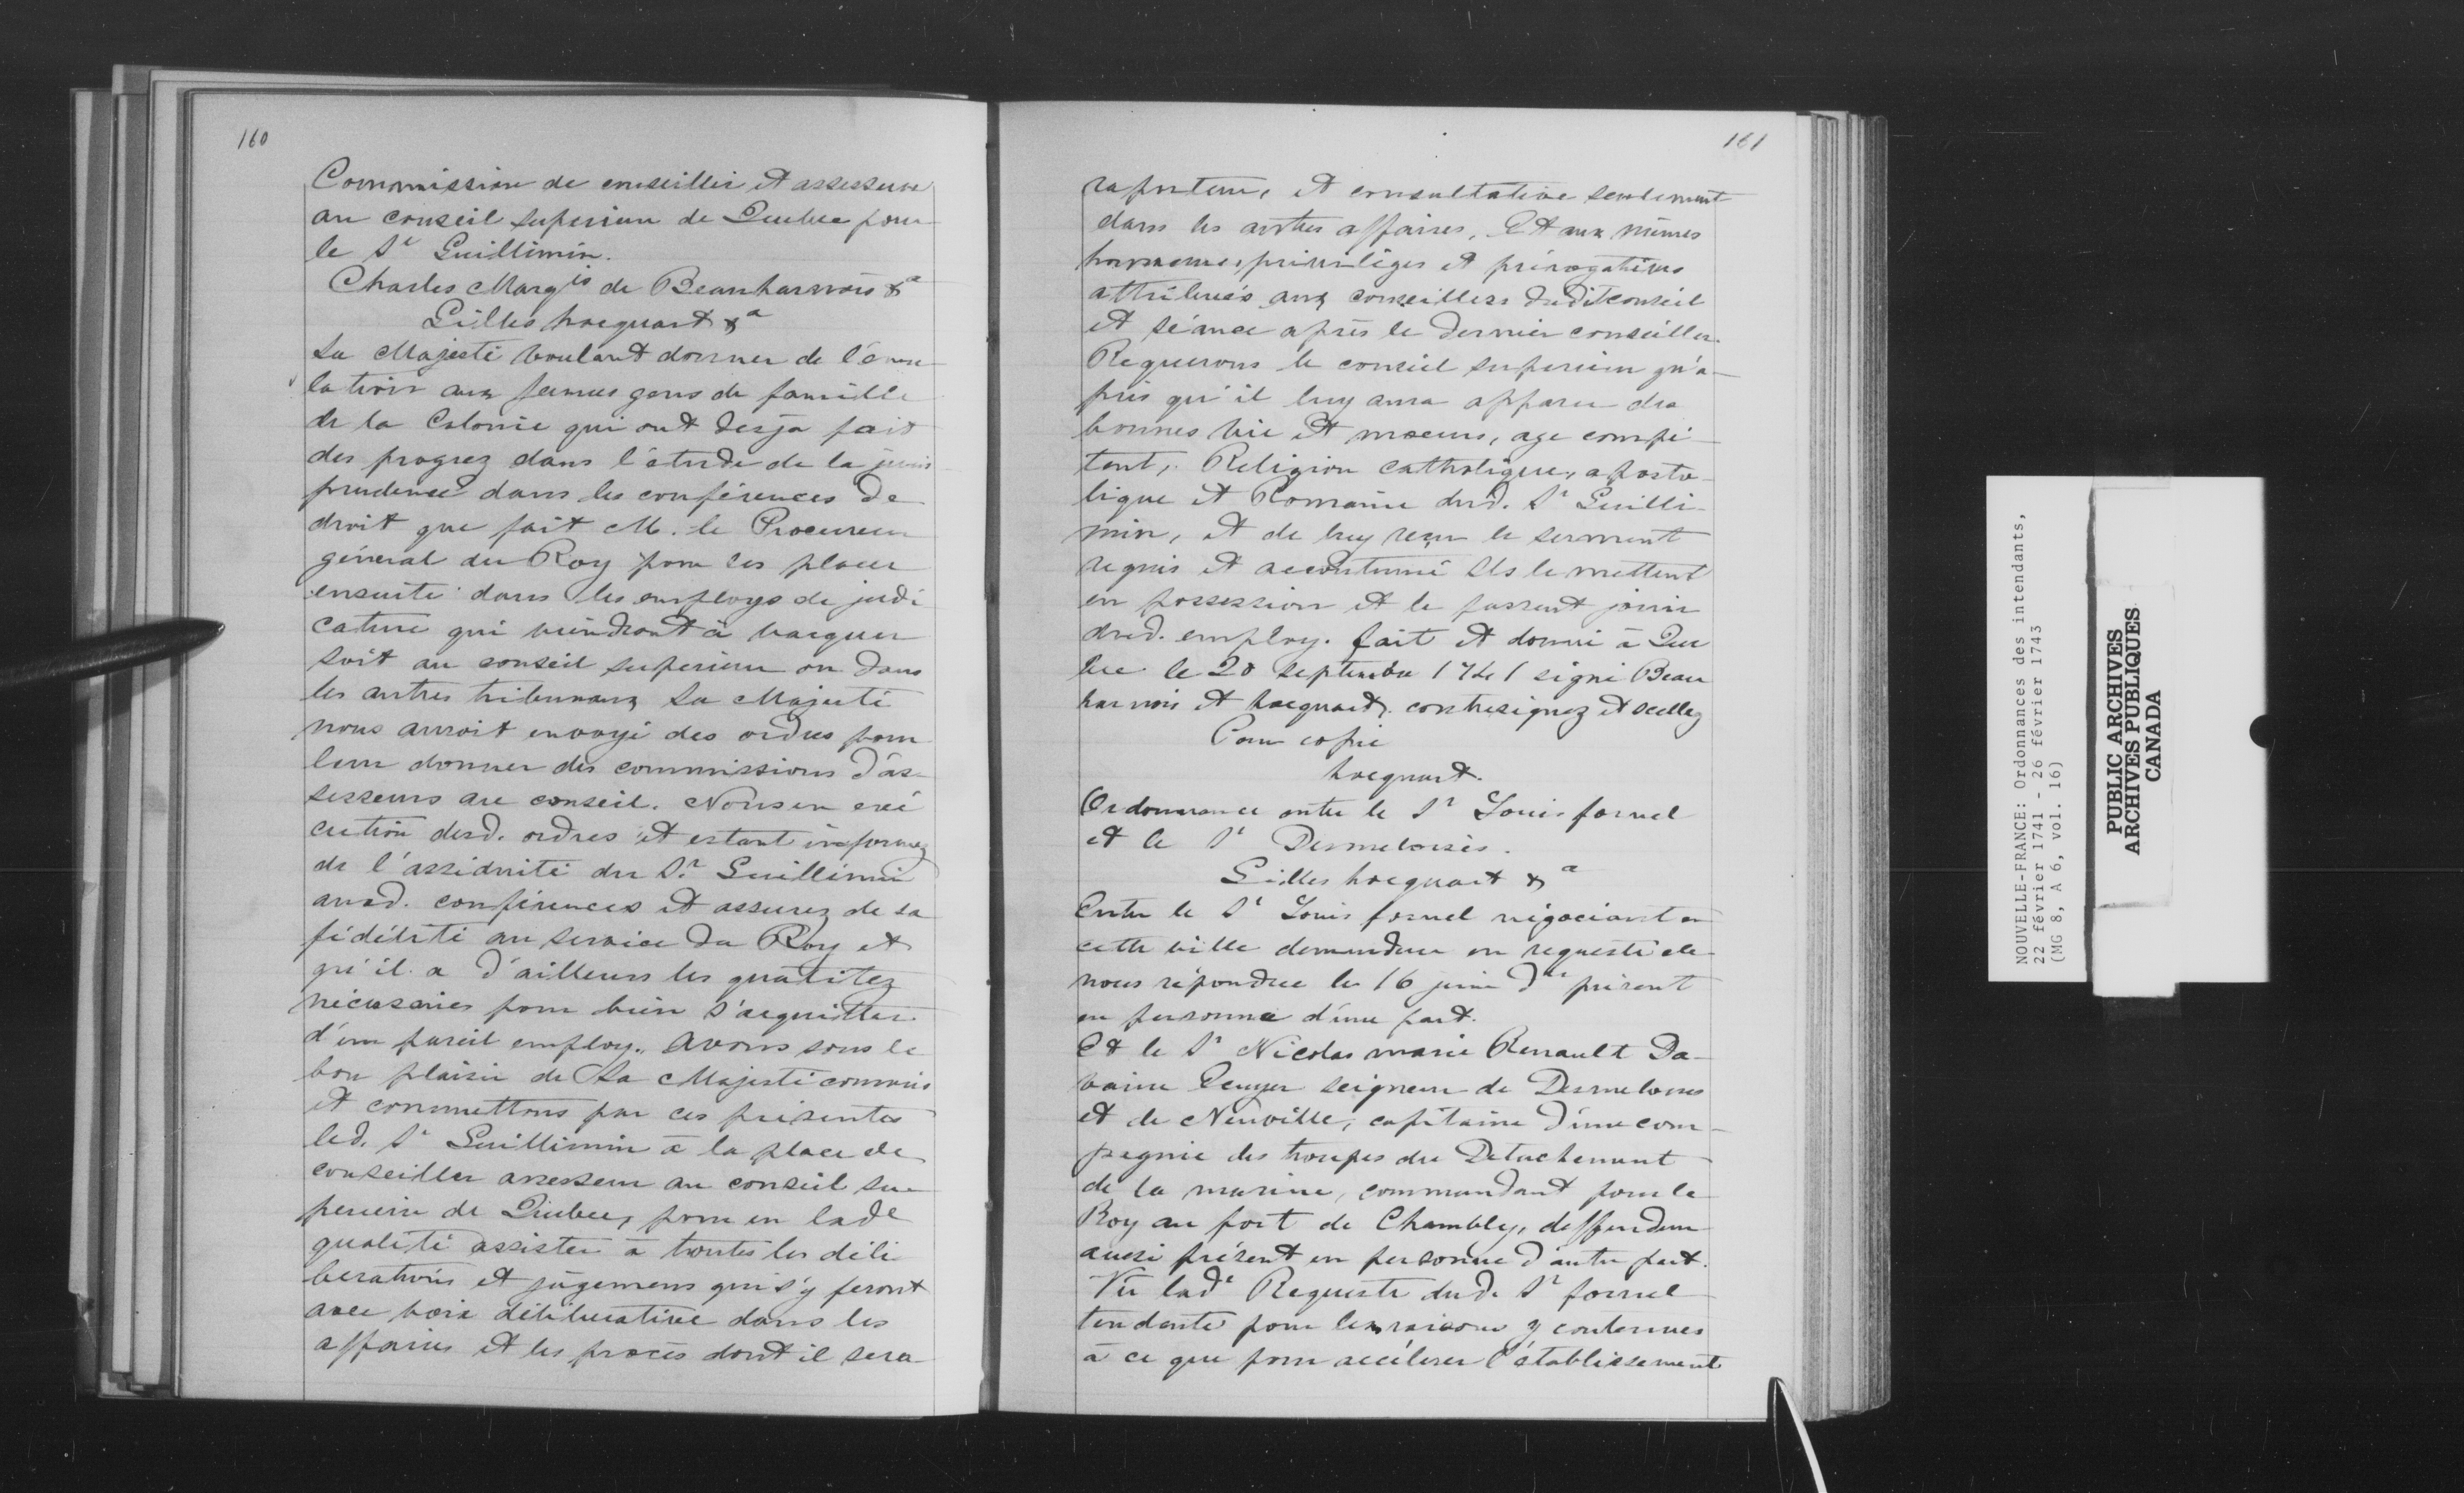 160
Commission de conseiller et assesseur
au conseil superieur de Quebec pour
le Sr Guillimin.
Charles Margis de Beauharnois &a
Gilles hocquart &a
Sa Majesté voulant donner de l'ému-
lation aux jeunes gens de famille
de la Colonie qui ont desja fait
des progrez dans l'étude de la juris
prudence dans les conférences de
droit que fait M. le Procureur
général du Roy pour les placer
ensuite dans les employs de judi
cature qui viendront à vacquer
soit au conseil superieur ou dans
les autres tribunaux Sa Majesté
nous auroit envoyé des ordres pour
leur donner des commissions d'as-
sesseurs au conseil. Nous en exé
cution desd. ordres et estant informez
de l'assiduité du Sr. Guillimin
auxd. conférences et assurez de sa
fidélité au service du Roy et
qu'il a d'ailleurs les qualitez
nécessaires pour bien s'acquitter
d'un pareil employ. Avons sous le
bon plaisir de Sa Majesté commis
et commettons par ces présentes
led. Sr Guillimin à la place de
conseiller assesseur au conseil su-
perieur de Quebec, pour en lade
qualité assister à toutes les déli
berations et jugemens qui s'y feront
avec voix délibérative dans les
affaires et les procès dont il sera
161
raporteur, et consultative seulement
dans les autres affaires, Et aux mêmes
honneurs, privilèges et prérogatives
attribués aux conseillers dudit conseil
et séance après le dernier conseiller.
Requerons le conseil superieur qu'a-
près qu'il luy aura apparu des
bonnes vie et moeurs, age compé-
tent, Religion catholique, aposto-
lique et Romaine dud. Sr Guilli-
min, et de luy reçu le serment
requis et accoutumé Ils le mettent
en possession et le fassent jouir
dud. employ. fait et donné à Que
bec le 20 septembre 1741 signé Beau
harnois et hocquart. contresignez et scellez
Pour copie
hocquart.
Ordonnance entre le Sr Louis fornel
et le Sr Desmeloises.
Gilles hocquart &a
Entre le Sr Louis fornel négociant en
cette ville demandeur en requeste de
nous répondue le 16 juin der présent
en personne d'une part.
Et le Sr Nicolas marie Renault Da-
vaine Ecuyer seigneur de Desmeloises
et de Neuville, capitaine d'une com-
pagnie des troupes du Detachement
de la marine, commandant pour le
Roy au fort de Chambly, deffendeur
aussi présent en personne d'autre part.
Vu lade Requeste dud. Sr fornel
tendante pour les raisons y contenues
à ce que pour accélerer l'établissement
NOUVELLE-FRANCE: Ordonnances des intendants,
22 février 1741 - 26 février 1743
(MG 8, A 6, vol. 16)
PUBLIC ARCHIVES
ARCHIVES PUBLIQUES
CANADA